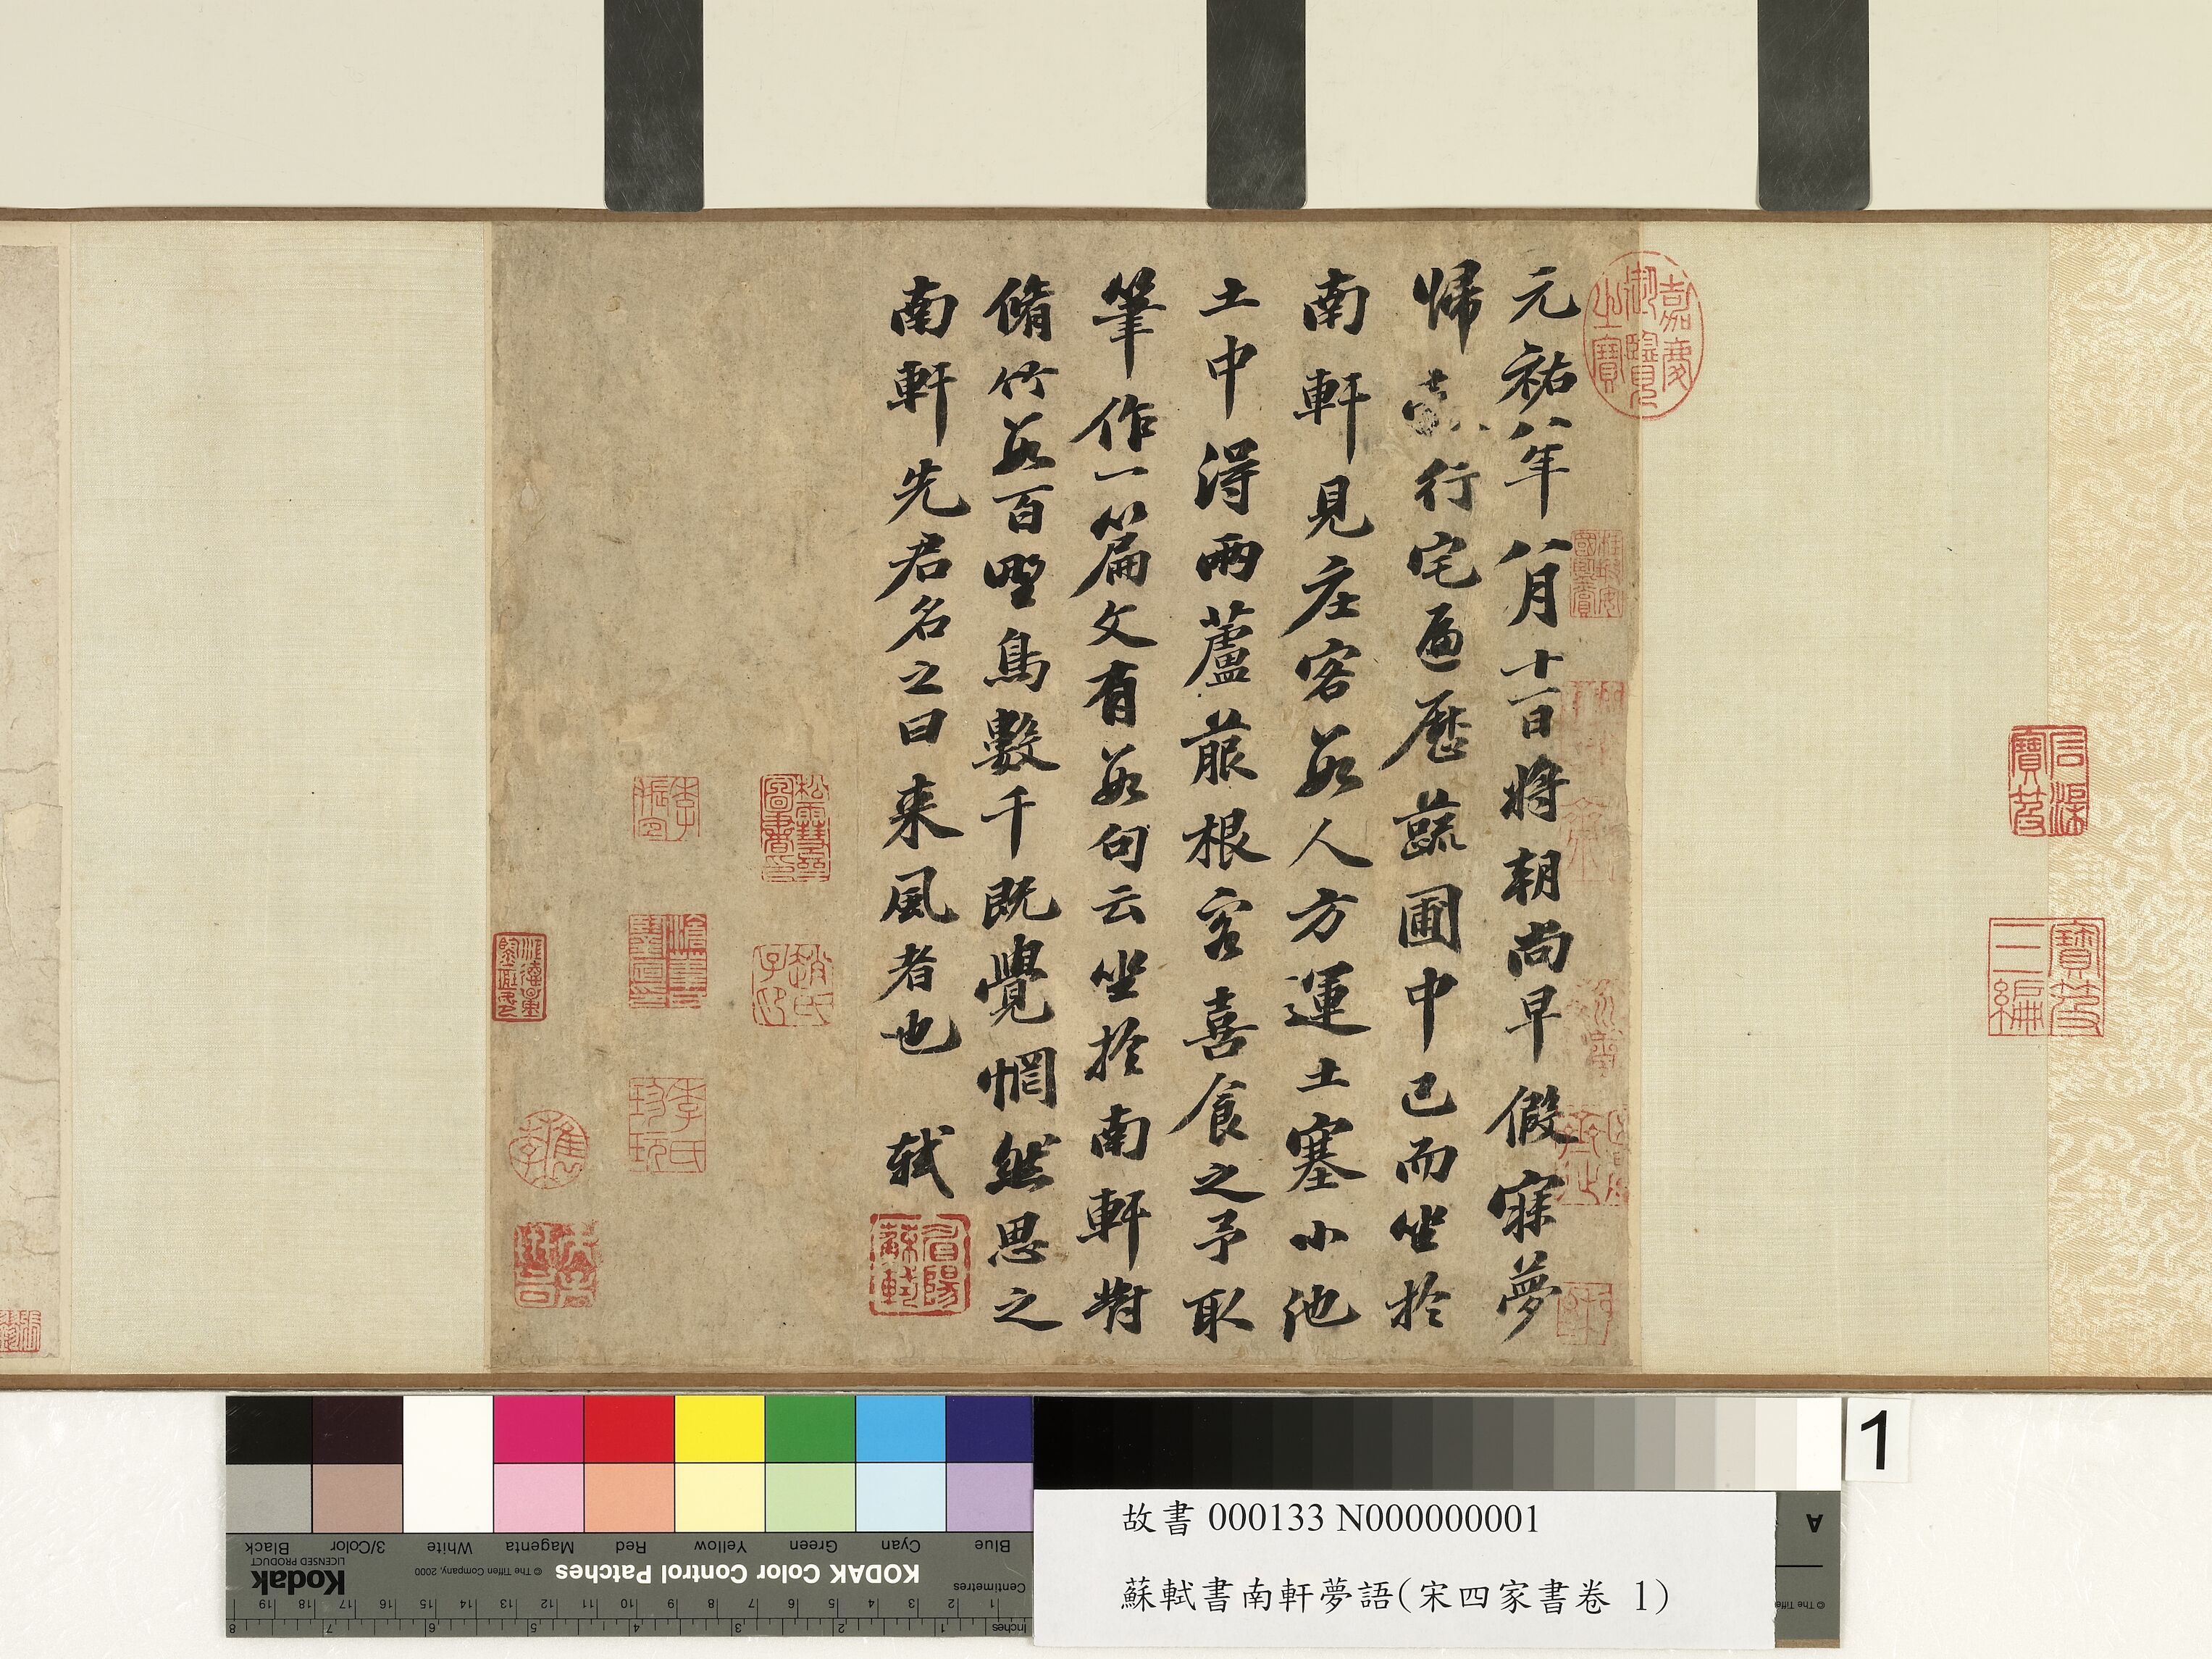 元祐八年八月十一日將朝尚早假寐夢
歸 行宅遍歷蔬圃中已而坐於
南軒見庄客數人方運土塞小池
土中得兩蘆菔根客喜食之予取
筆作一篇文有數句云坐於南軒對
脩竹數百野鳥數千既覺惘然思之
南軒先君名之曰来風者也 軾
嘉慶御覽之寶
石渠寶笈
寶笈三編
松雪齋圖書印
趙氏子昂
眉陽蘇軾
李氏珍玩
1
故書 000133 N000000001
蘇軾書南軒夢語(宋四家書卷 1)
Black
3/Color
White
Magenta
Red
Yellow
Green
Cyan
Blue
Kodak
LICENSED PRODUCT
© The Tiffen Company, 2000
KODAK Color Control Patches
Centimetres
19 18 17 16 15 14 13 12 11 10 9 8 7 6 5 4 3 2 1
8 7 6 5 4 3 2 1 Inches
A
© The Tiffe